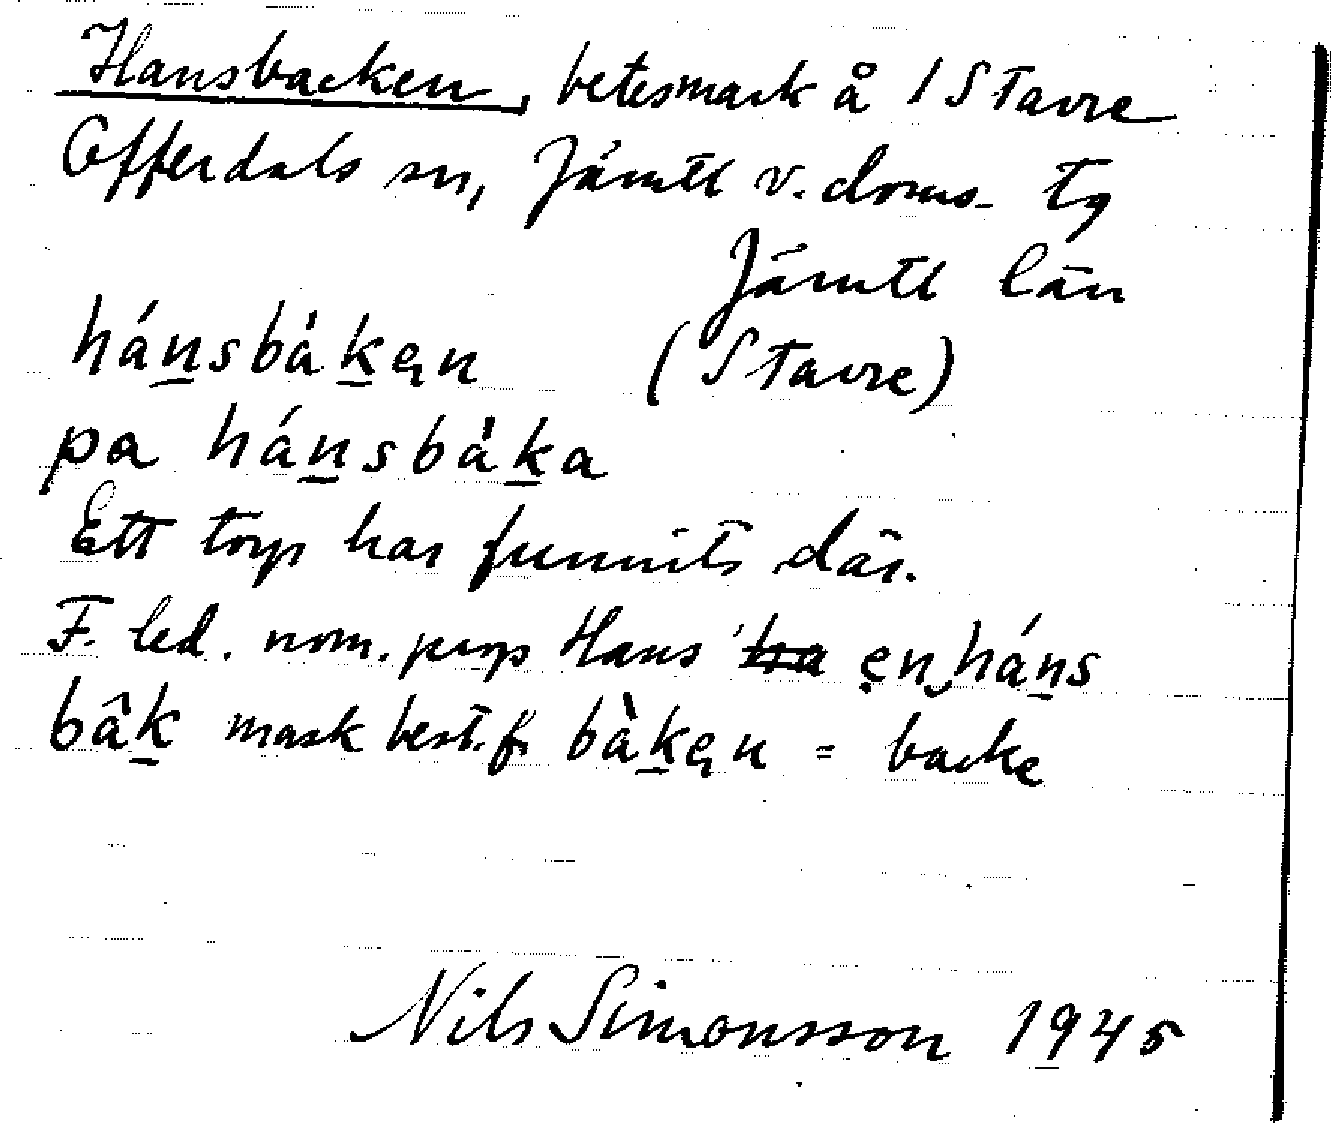 Hansbacken, betesmark å 1 Stavre
Offerdals sn, Jämtl v. doms. tg
Jämtl län
hánsbàkęn (Stavre)
pa hánsbàka
Ett torp har funnits där.
F. led. nom. prop Hans ęn háns
bâk mask best. f. bàkęn = backe
Nils Simonsson 1945